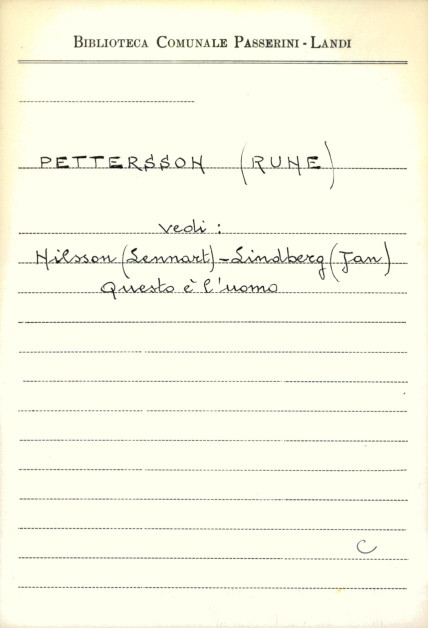 BIBLIOTECA COMUNALE PASSERINI - LANDI
PETTERSSON (RUNE)
vedi :
Nilsson (Lennart) - Lindberg (Jan)
Questo è l'uomo
C